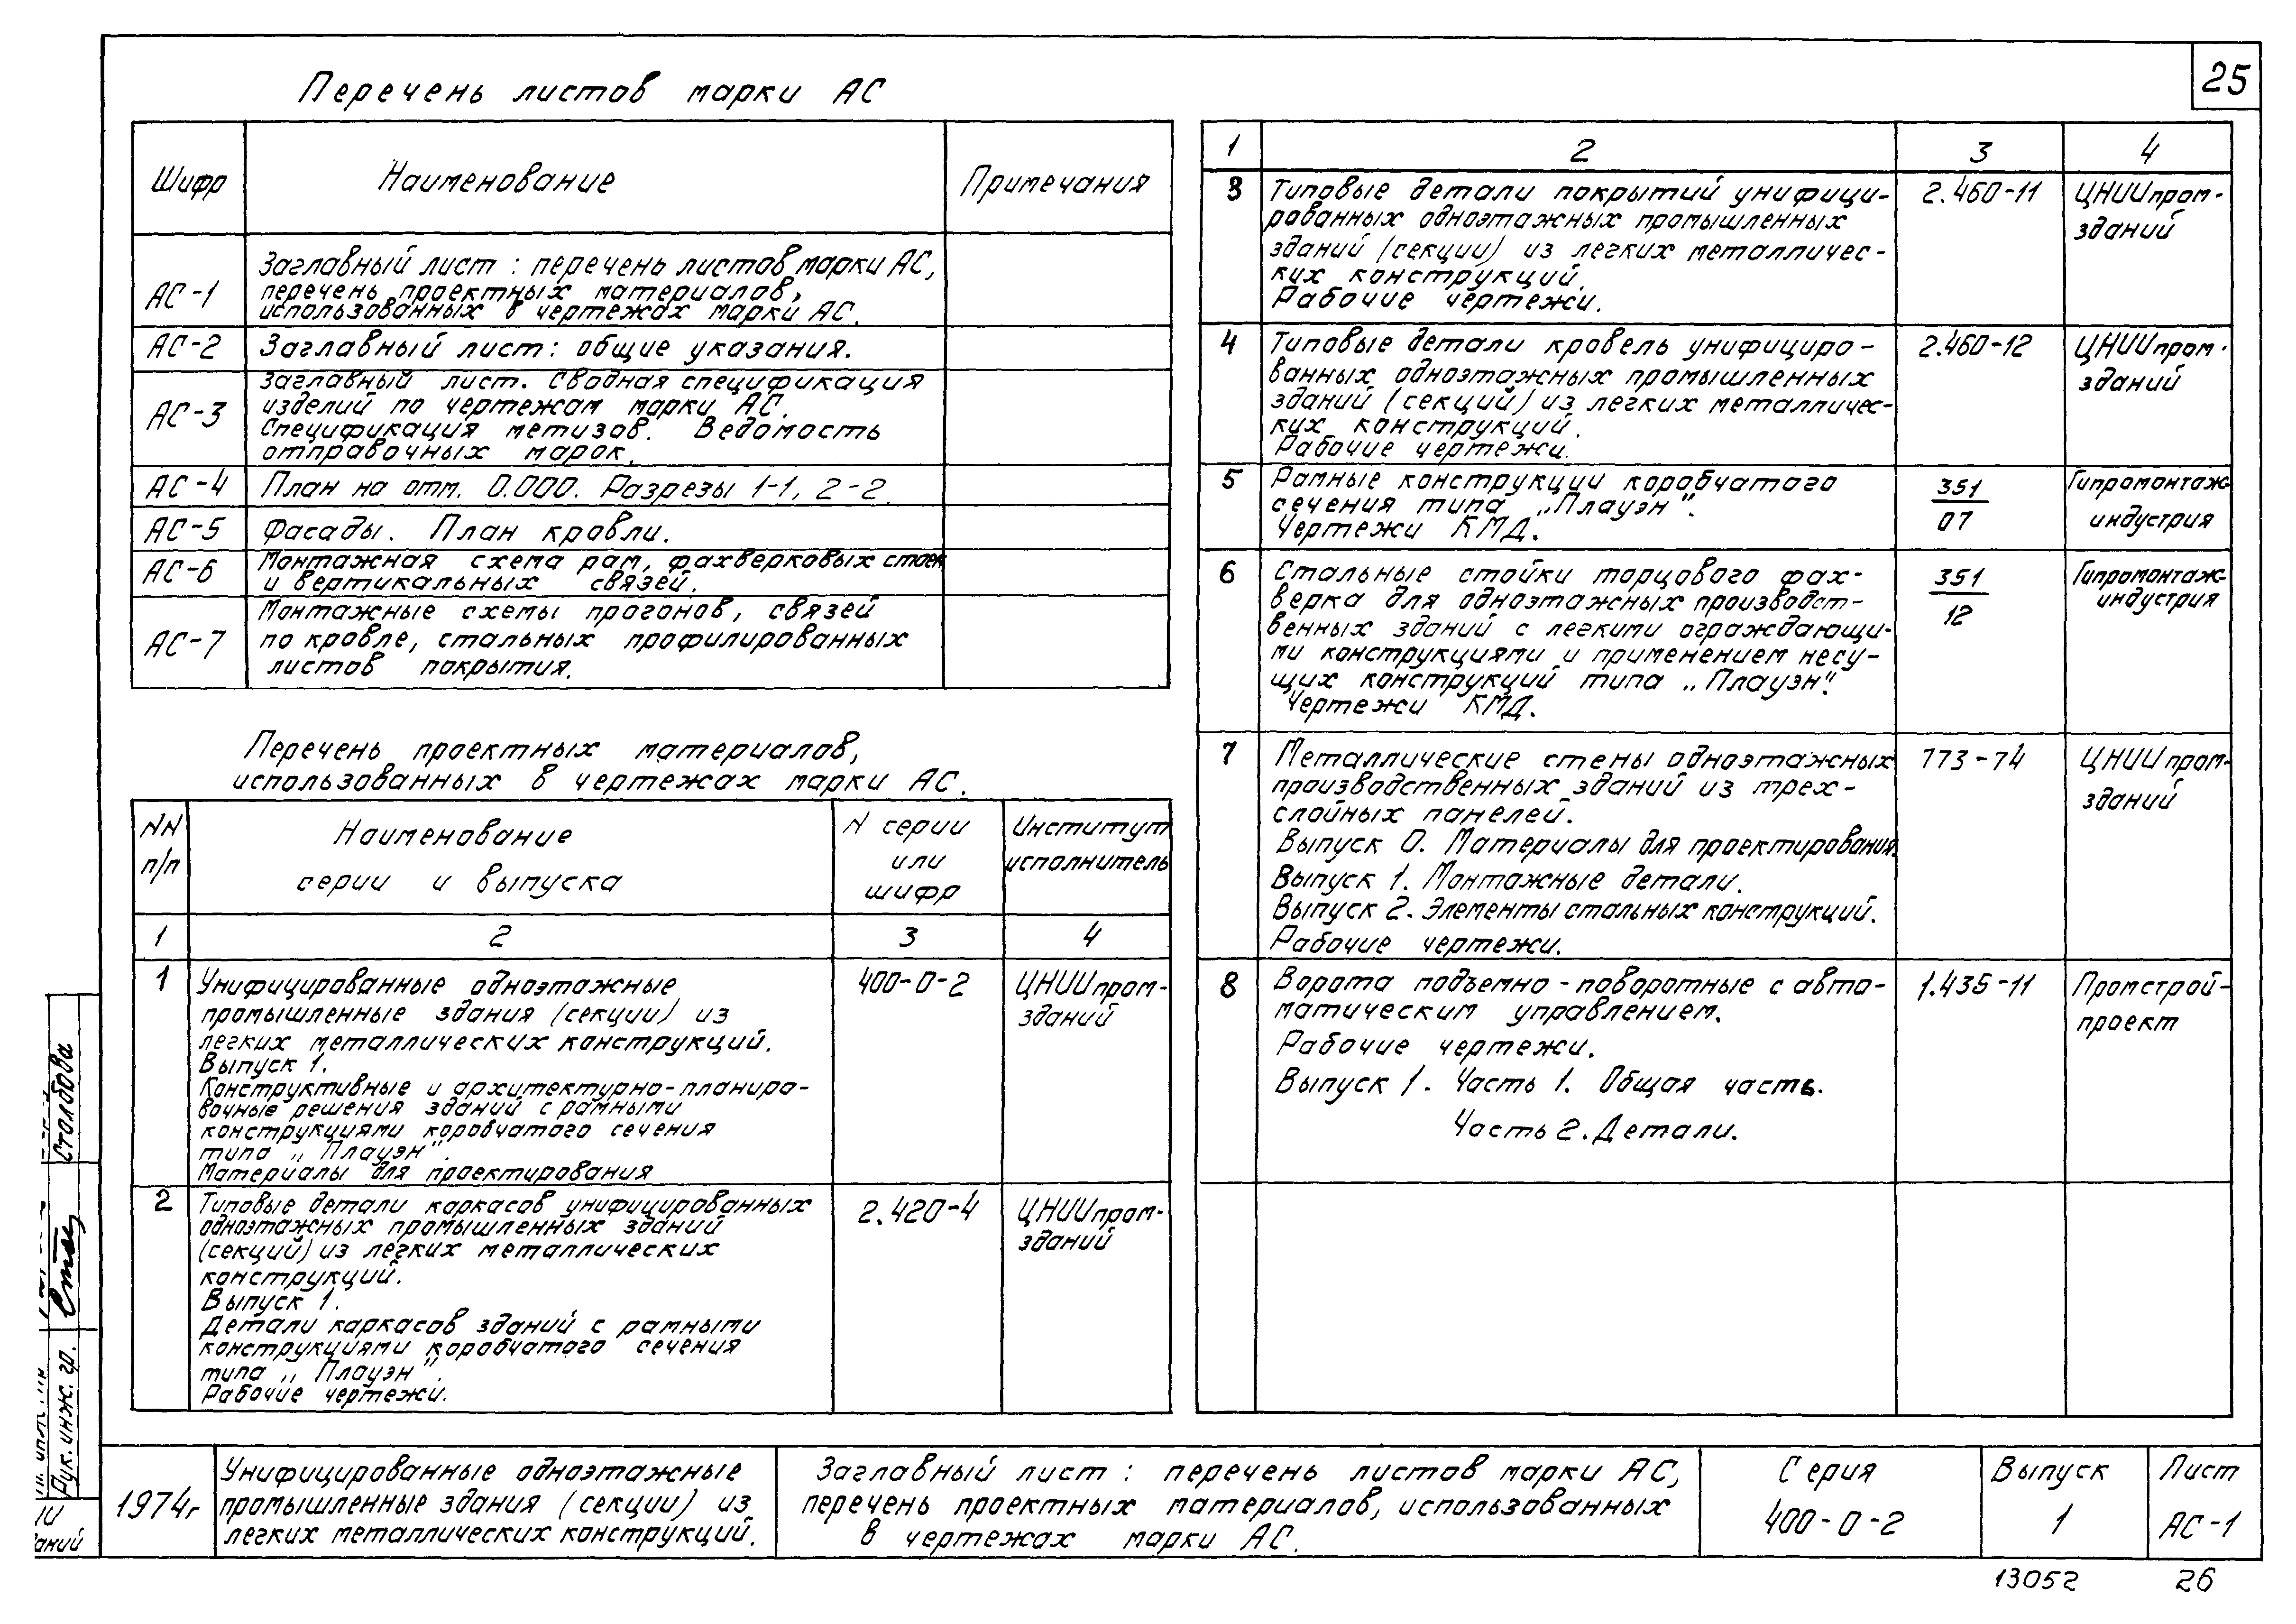 25
Перечень листов марки АС
Шифр
Наименование
Примечания
АС-1
Заглавный лист : перечень листов марки АС,
перечень проектных материалов,
использованных в чертежах марки АС.
АС-2
Заглавный лист: общие указания.
АС-3
Заглавный лист. Сводная спецификация
изделий по чертежам марки АС.
Спецификация метизов. Ведомость
отправочных марок.
АС-4
План на отм. 0.000. Разрезы 1-1, 2-2.
АС-5
Фасады. План кровли.
АС-6
Монтажная схема рам, фахверковых стоек
и вертикальных связей.
АС-7
Монтажные схемы прогонов, связей
по кровле, стальных профилированных
листов покрытия.
Перечень проектных материалов,
использованных в чертежах марки АС.
NN
п/п
Наименование
серии и выпуска
N серии
или
шифр
Институт
исполнитель
1
2
3
4
1
Унифицированные одноэтажные
промышленные здания (секции) из
легких металлических конструкций.
Выпуск 1.
Конструктивные и архитектурно-планиро-
вочные решения зданий с рамными
конструкциями коробчатого сечения
типа „Плауэн".
Материалы для проектирования
400-0-2
ЦНИИпром-
зданий
2
Типовые детали каркасов унифицированных
одноэтажных промышленных зданий
(секций) из легких металлических
конструкций.
Выпуск 1.
Детали каркасов зданий с рамными
конструкциями коробчатого сечения
типа „Плауэн".
Рабочие чертежи.
2.420-4
ЦНИИпром-
зданий
1
2
3
4
3
Типовые детали покрытий унифици-
рованных одноэтажных промышленных
зданий (секции) из легких металличес-
ких конструкций.
Рабочие чертежи.
2.460-11
ЦНИИпром-
зданий
4
Типовые детали кровель унифициро-
ванных одноэтажных промышленных
зданий (секций) из легких металличес-
ких конструкций.
Рабочие чертежи.
2.460-12
ЦНИИпром-
зданий
5
Рамные конструкции коробчатого
сечения типа „Плауэн".
Чертежи КМД.
351
07
Гипромонтаж-
индустрия
6
Стальные стойки торцового фах-
верка для одноэтажных производст-
венных зданий с легкими ограждающи-
ми конструкциями и применением несу-
щих конструкций типа „Плауэн".
Чертежи КМД.
351
12
Гипромонтаж-
индустрия
7
Металлические стены одноэтажных
производственных зданий из трех-
слойных панелей.
Выпуск 0. Материалы для проектирования.
Выпуск 1. Монтажные детали.
Выпуск 2. Элементы стальных конструкций.
Рабочие чертежи.
773-74
ЦНИИпром-
зданий
8
Ворота подъемно-поворотные с авто-
матическим управлением.
Рабочие чертежи.
Выпуск 1. Часть 1. Общая часть.
Часть 2. Детали.
1.435-11
Промстрой-
проект
Столбова
Рук. инж. гр.
1974г
Унифицированные одноэтажные
промышленные здания (секции) из
легких металлических конструкций.
Заглавный лист : перечень листов марки АС,
перечень проектных материалов, использованных
в чертежах марки АС.
Серия
400-0-2
Выпуск
1
Лист
АС-1
13052
26